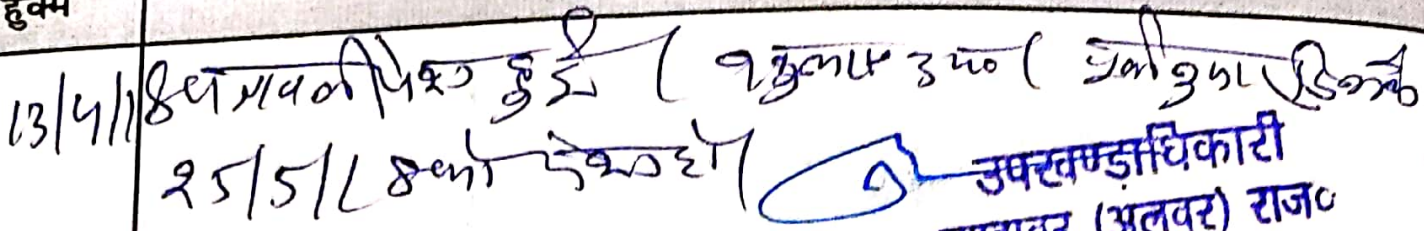 हुक्म
13/4/18 पत्रावली पेश हुई। वकुलाय उप०।
25/5/18 को पेश हो।
उपखण्डाधिकारी
(अलवर) राज०